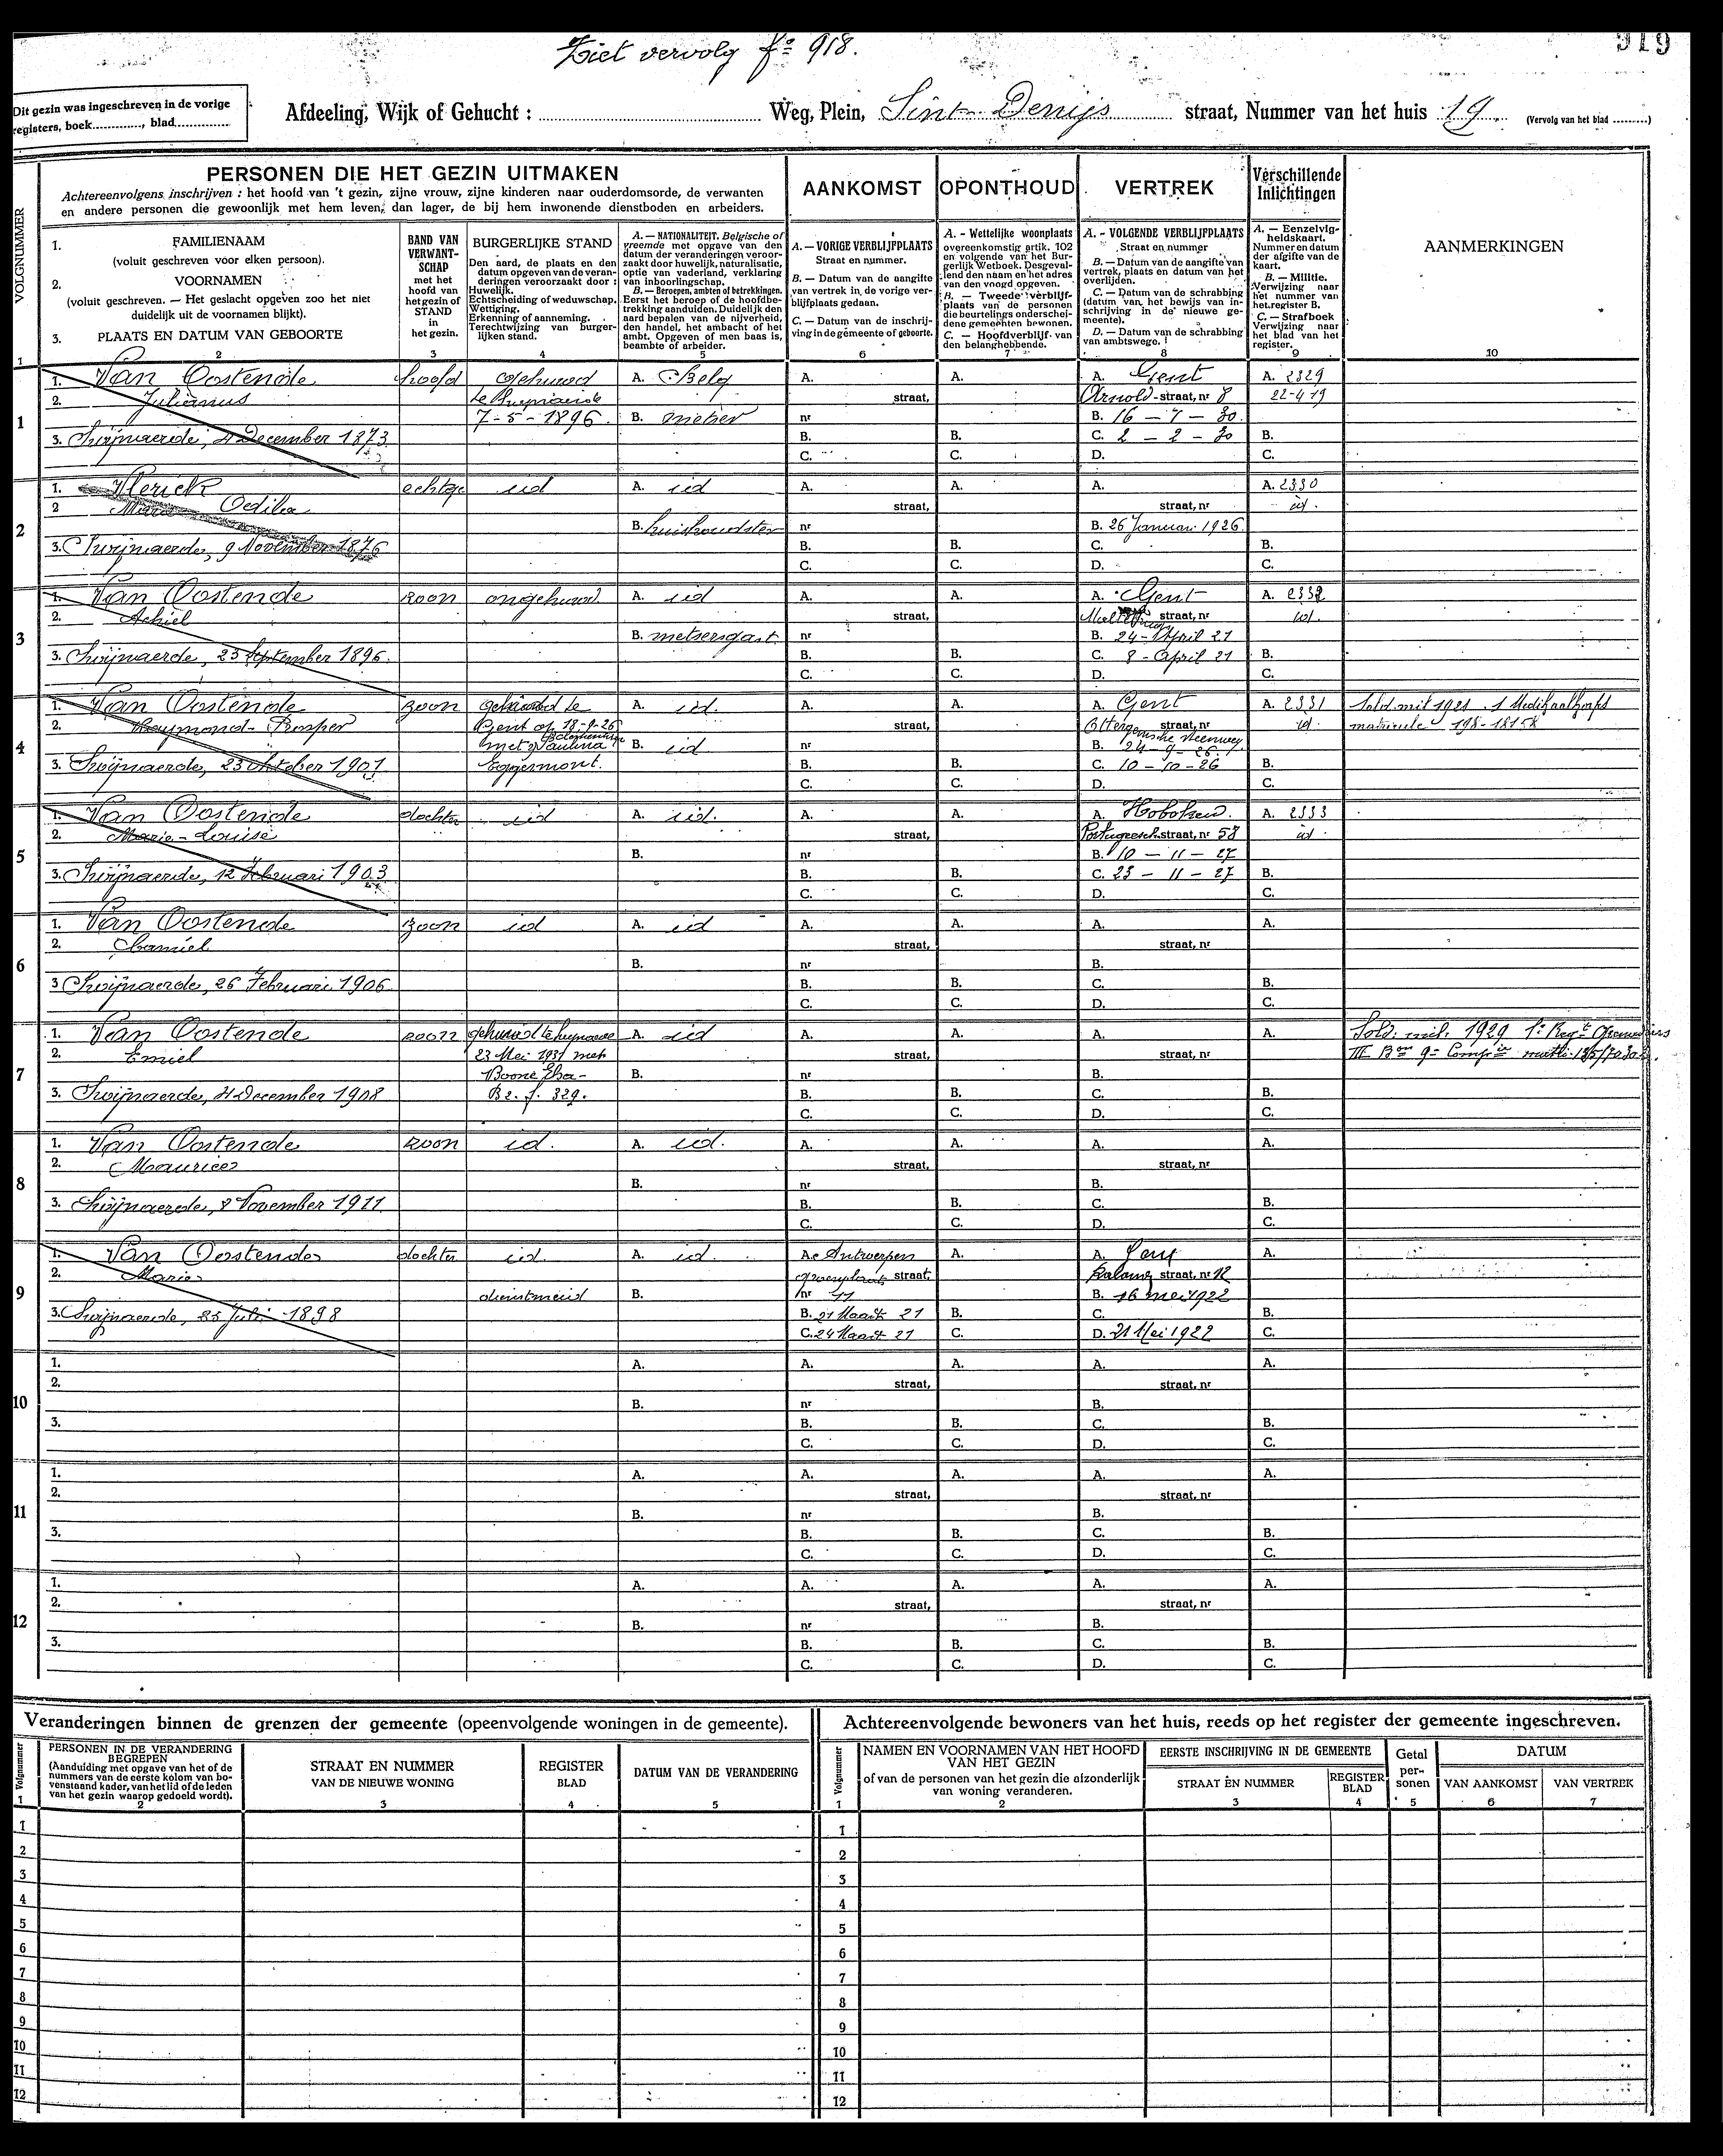 Ziet vervolg fo 918.
919
Dit gezin was ingeschreven in de vorige
registers, boek............., blad..............
Afdeeling, Wijk of Gehucht : Weg, Plein, Sint Denijs straat, Nummer van het huis 19. (Vervolg van het blad .........)
VOLGNUMMER
PERSONEN DIE HET GEZIN UITMAKEN
Achtereenvolgens inschrijven : het hoofd van 't gezin, zijne vrouw, zijne kinderen naar ouderdomsorde, de verwanten
en andere personen die gewoonlijk met hem leven, dan lager, de bij hem inwonende dienstboden en arbeiders.
AANKOMST
OPONTHOUD
VERTREK
Verschillende
Inlichtingen
AANMERKINGEN
1. FAMILIENAAM
(voluit geschreven voor elken persoon).
2. VOORNAMEN
(voluit geschreven. — Het geslacht opgeven zoo het niet
duidelijk uit de voornamen blijkt).
3. PLAATS EN DATUM VAN GEBOORTE
BAND VAN
VERWANT-
SCHAP
met het
hoofd van
het gezin of
STAND
in
het gezin.
BURGERLIJKE STAND
Den aard, de plaats en den
datum opgeven van de veran-
deringen veroorzaakt door :
Huwelijk.
Echtscheiding of weduwschap.
Wettiging.
Erkenning of aanneming.
Terechtwijzing van burger-
lijken stand.
A. — NATIONALITEIT. Belgische of
vreemde met opgave van den
datum der veranderingen veroor-
zaakt door huwelijk, naturalisatie,
optie van vaderland, verklaring
van inboorlingschap.
B. — Beroepen, ambten of betrekkingen.
Eerst het beroep of de hoofdbe-
trekking aanduiden. Duidelijk den
aard bepalen van de nijverheid,
den handel, het ambacht of het
ambt. Opgeven of men baas is,
beambte of arbeider.
A. — VORIGE VERBLIJFPLAATS
Straat en nummer.
B. — Datum van de aangifte
van vertrek in de vorige ver-
blijfplaats gedaan.
C. — Datum van de inschrij-
ving in de gemeente of geboorte.
A. - Wettelijke woonplaats
overeenkomstig artik. 102
en volgende van het Bur-
gerlijk Wetboek. Desgeval-
lend den naam en het adres
van den voogd opgeven.
B. — Tweede verblijf-
plaats van de personen
die beurtelings onderschei-
dene gemeenten bewonen.
C. — Hoofdverblijf van
den belanghebbende.
A. - VOLGENDE VERBLIJFPLAATS
Straat en nummer
B. — Datum van aangifte van
vertrek, plaats en datum van het
overlijden.
C. — Datum van de schrabbing
(datum van het bewijs van in-
schrijving in de nieuwe ge-
meente).
D. — Datum van de schrabbing
van ambtswege.
A. — Eenzelvig-
heidskaart.
Nummer en datum
der afgifte van de
kaart.
B. — Militie.
Verwijzing naar
het nummer van
het register B.
C. — Strafboek
Verwijzing naar
het blad van het
register.
1 2 3 4 5 6 7 8 9 10
1
1. Van Oostende hoofd gehuwd A. Belg A. A. A. Gent A. 2329
2. Julianus te Swijnaerde straat, Arnold straat, nr 8 22-4-19
7-5-1896. B. metser nr B. 16 — 7 — 30
3. Swijnaerde, 4 December 1873. B. B. C. 2 — 2 — 30 B.
C. C. D. C.
2
1. Vlerick echtge id A. id A. A. A. A. 2330
2 Maria Odilia straat, straat, nr id.
B. huishoudster nr B. 26 Januari 1926
3. Swijnaerde, 9 November 1876 B. B. C. B.
C. C. D. C.
3
1. Van Oostende zoon ongehuwd. A. id A. A. A. Gent A. 2332
2. Achiel straat, straat, nr id.
B. metsersgast. nr B. 24 - April 21
3. Swijnaerde, 25 September 1896. B. B. C. 8 - April 21 B.
C. C. D. C.
4
1. Van Oostende zoon gehuwd te A. id. A. A. A. Gent A. 2331 Sold. mil 1921. 1 Medikaalkorps
2. Reymond-Prosper Gent op 18-9-26 straat, Ottergemsche steenweg straat, nr id. matricule 198-18158
met Paulina B. id nr B. 24-9-26.
3. Swijnaerde, 23 Oktober 1901 Eggermont. B. B. C. 10-10-26 B.
C. C. D. C.
5
1. Van Oostende dochter id A. id. A. A. A. Hoboken. A. 2333
2. Marie-Louise straat, Portugeesch straat, nr 58 id.
B. nr B. 10 — 11 — 27
3. Swijnaerde, 12 Februari 1903 B. B. C. 23 — 11 — 27 B.
C. C. D. C.
6
1. Van Oostende zoon id A. id A. A. A. A.
2. Camiel straat, straat, nr
B. nr B.
3 Swijnaerde, 26 Februari 1906 B. B. C. B.
C. C. D. C.
7
1. Van Oostende zoon gehuwd te Swynaerde A. id A. A. A. A. Sold. mil. 1929 1e Regt Grenadiers
2. Emiel 23 Mei 1931 met straat, straat, nr III Bon 9e Compie
Boone Elsa- B. nr B.
3. Swijnaerde, 4 December 1908 B2. f. 329. B. B. C. B.
C. C. D. C.
8
1. Van Oostende zoon id. A. id. A. A. A. A.
2. Maurice straat, straat, nr
B. nr B.
3. Swijnaerde, 8 November 1911 B. B. C. B.
C. C. D. C.
9
1. Van Oostende dochter id. A. id. A. Antwerpen A. A. Gent A.
2. Marie straat, straat, nr 12
dienstmeid B. nr 11 B. 16 mei 1922
3. Swijnaerde, 25 Juli 1898 B. 21 Maart 21 B. C. B.
C. 24 Maart 21 C. D. 21 Mei 1922 C.
10
1. A. A. A. A. A.
2. straat, straat, nr
B. nr B.
3. B. B. C. B.
C. C. D. C.
11
1. A. A. A. A. A.
2. straat, straat, nr
B. nr B.
3. B. B. C. B.
C. C. D. C.
12
1. A. A. A. A. A.
2. straat, straat, nr
B. nr B.
3. B. B. C. B.
C. C. D. C.
Veranderingen binnen de grenzen der gemeente (opeenvolgende woningen in de gemeente).
Volgnummer
PERSONEN IN DE VERANDERING
BEGREPEN
(Aanduiding met opgave van het of de
nummers van de eerste kolom van bo-
venstaand kader, van het lid of de leden
van het gezin waarop gedoeld wordt).
STRAAT EN NUMMER
VAN DE NIEUWE WONING
REGISTER
BLAD
DATUM VAN DE VERANDERING
1 2 3 4 5
1
2
3
4
5
6
7
8
9
10
11
12
Achtereenvolgende bewoners van het huis, reeds op het register der gemeente ingeschreven.
Volgnummer
NAMEN EN VOORNAMEN VAN HET HOOFD
VAN HET GEZIN
of van de personen van het gezin die afzonderlijk
van woning veranderen.
EERSTE INSCHRIJVING IN DE GEMEENTE
STRAAT EN NUMMER
REGISTER
BLAD
Getal
per-
sonen
DATUM
VAN AANKOMST
VAN VERTREK
1 2 3 4 5 6 7
1
2
3
4
5
6
7
8
9
10
11
12